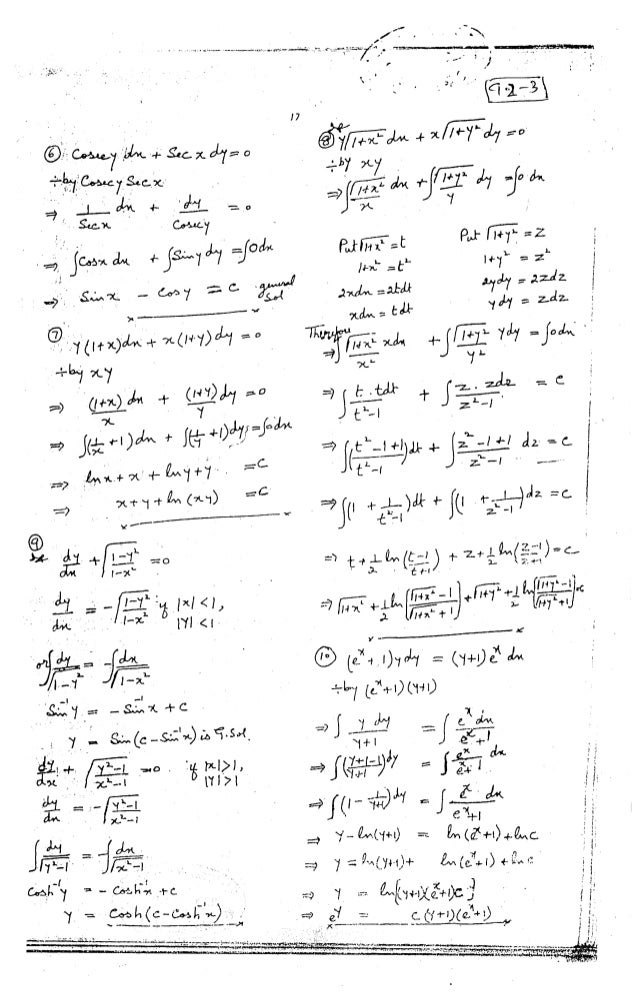 9.2-3
17
⑥ Cosecy dn + Sec x dy = 0
÷by Cosecy Sec x
⇒ 1/Sec x dn + dy/Cosecy = 0
⇒ ∫Cosx dn + ∫Siny dy = ∫0dn
⇒ Sinx - Cosy = c general Sol
⑦ y(1+x)dn + x(1+y)dy = 0
÷by xy
⇒ (1+x)/x dn + (1+y)/y dy = 0
⇒ ∫(1/x +1)dn + ∫(1/y +1)dy = ∫0dn
⇒ lnx + x + lny + y = C
⇒ x+y+ln(xy) = C
⑨
dy/dn + √(1-y²/1-x²) = 0
dy/dn = -√(1-y²/1-x²) if |x|<1, |y|<1
or ∫dy/√1-y² = -∫dn/√1-x²
Sin⁻¹y = -Sin⁻¹x + c
y = Sin(c-Sin⁻¹x) is G.Sol.
dy/dx + √(y²-1/x²-1) = 0 if |x|>1, |y|>1
dy/dn = -√(y²-1/x²-1)
∫dy/√y²-1 = -∫dn/√x²-1
Cosh⁻¹y = -Cosh⁻¹x + c
y = Cosh(c-Cosh⁻¹x)
⑧ y√1+x² dn + x√1+y² dy = 0
÷by xy
⇒ ∫√1+x²/x dn + ∫√1+y²/y dy = ∫0 dn
Put √1+x² = t Put √1+y² = z
1+x² = t² 1+y² = z²
2xdn = 2tdt 2ydy = 2zdz
xdn = tdt ydy = zdz
Therefore
⇒ ∫√1+x²/x² xdn + ∫√1+y²/y² ydy = ∫0dn
⇒ ∫t.tdt/t²-1 + ∫z.zdz/z²-1 = c
⇒ ∫(t²-1+1/t²-1)dt + ∫z²-1+1/z²-1 dz = c
⇒ ∫(1 + 1/t²-1)dt + ∫(1 + 1/z²-1)dz = c
⇒ t + 1/2 ln(t-1/t+1) + z + 1/2 ln(z-1/z+1) = c
⇒ √1+x² + 1/2 ln[√1+x² -1/√1+x² +1] + √1+y² + 1/2 ln[√1+y² -1/√1+y² +1] = c
⑩ (eˣ+1)ydy = (y+1)eˣ dn
÷by (eˣ+1)(y+1)
⇒ ∫y dy/y+1 = ∫eˣ dn/eˣ+1
⇒ ∫(y+1-1/y+1)dy = ∫eˣ/eˣ+1 dn
⇒ ∫(1 - 1/y+1)dy = ∫eˣ dn/eˣ+1
⇒ y - ln(y+1) = ln(eˣ+1) + lnc
⇒ y = ln(y+1) + ln(eˣ+1) + lnc
⇒ y = ln{(y+1)(eˣ+1)c}
⇒ eʸ = c(y+1)(eˣ+1)